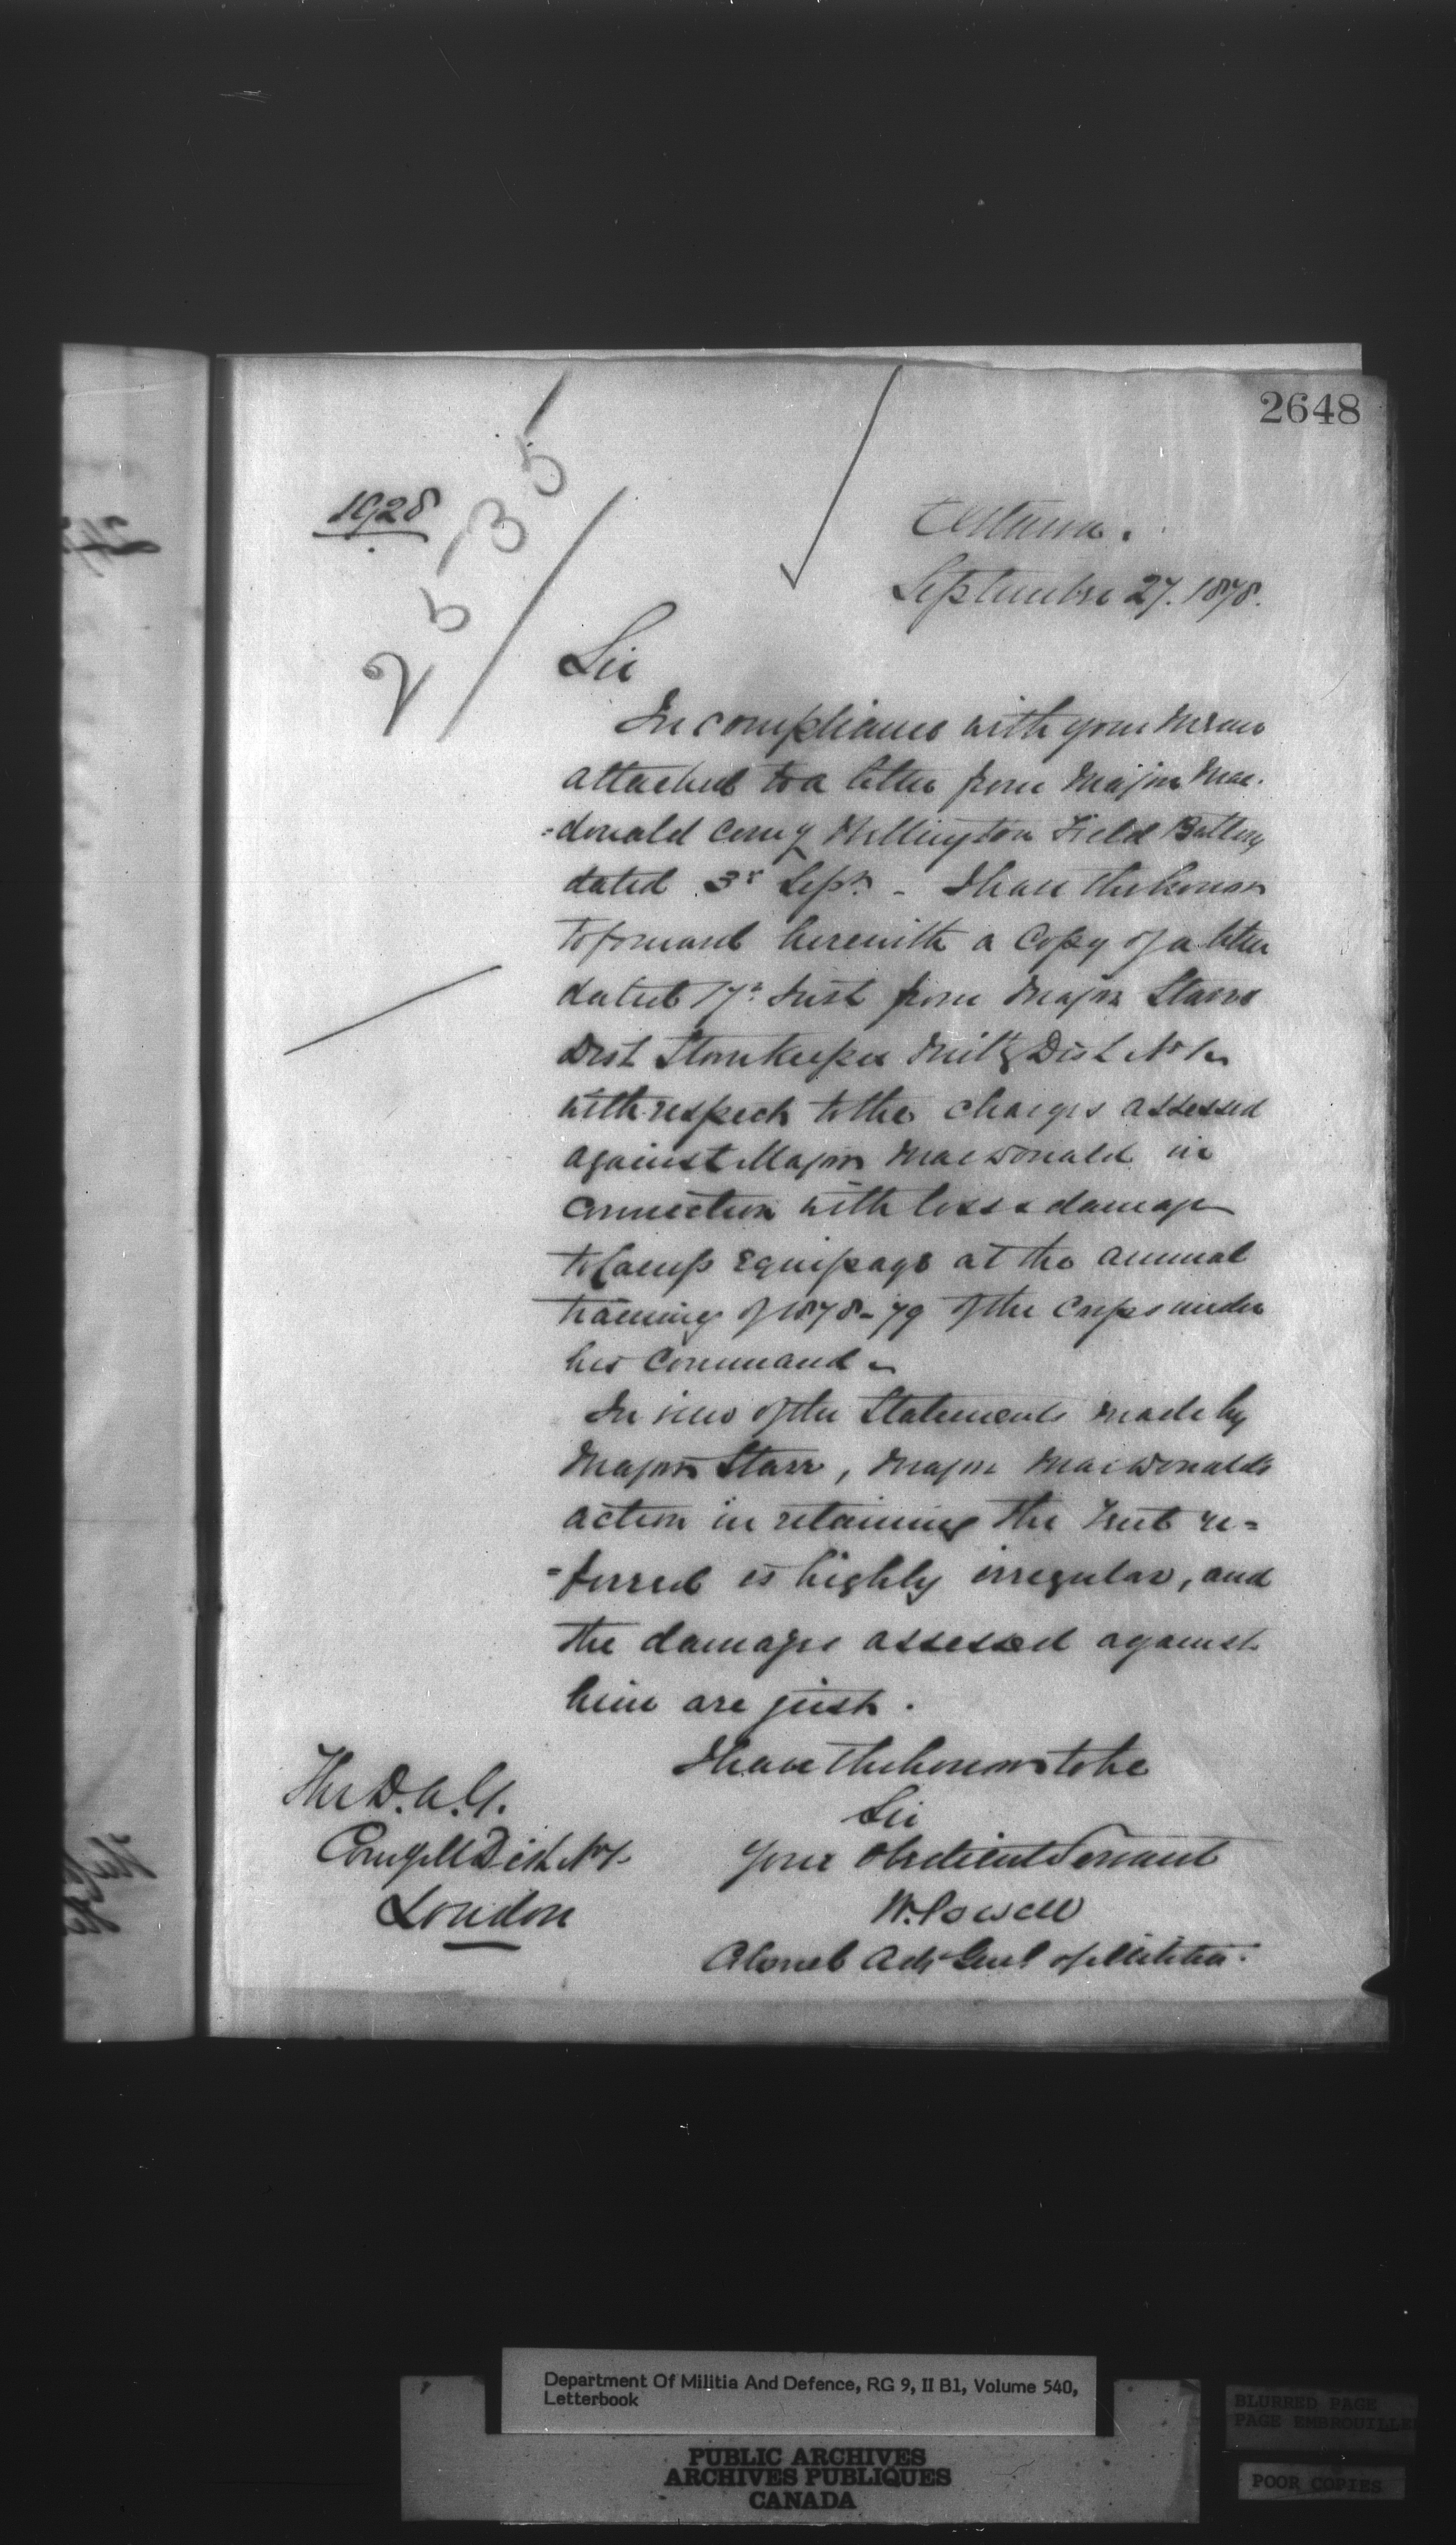 2648
1928
25,355
Ottawa.
September 27. 1878.
Sir
In compliance with your memo
attached to a letter from Major Mac-
=donald Comg Wellington Field Battery
dated 3r Sept. - I have the honor
to forward herewith a Copy of a letter
dated 17th Inst from Major Starr
Dist Storekeeper Milty Dist No 1.
with respect to the charges assessed
against Major MacDonald in
connection with loss & damage
to Camp Equipage at the annual
training of 1878-79 of the Corps under
his Command -
In view of the Statements made by
Major Starr, Major MacDonald's
action in retaining the Tent re=
=ferred is highly irregular, and
the damages assessed against
him are just.
I have the honor to be
Sir
Your Obedient Servant
W. Powell
Colonel Adjt Genl of Militia.
The D.A.G.
Comg M Dist No 1.
London
Department Of Militia And Defence, RG 9, II B1, Volume 540,
Letterbook
PUBLIC ARCHIVES
ARCHIVES PUBLIQUES
CANADA
BLURRED PAGE
PAGE EMBROUILLE
POOR COPIES